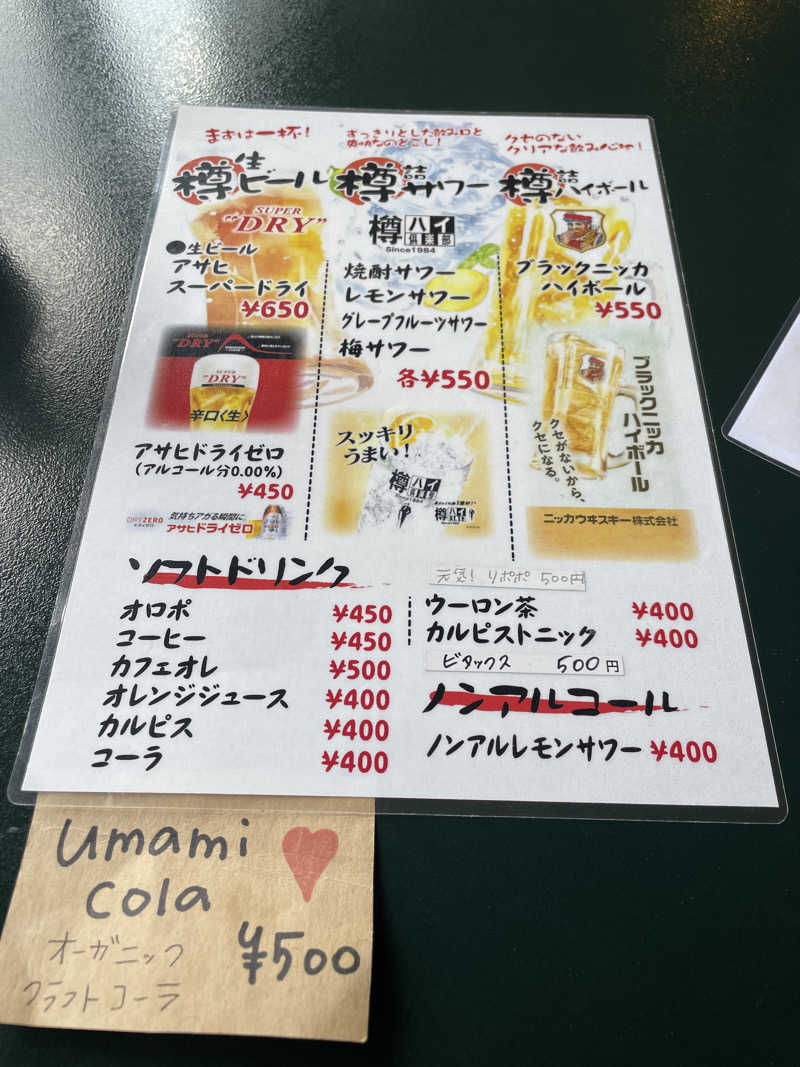 まずは一杯!
樽生ビール
SUPER
"DRY"
●生ビール
アサヒ
スーパードライ
¥650
SUPER
"DRY"
SUPER
"DRY"
辛口〈生〉
アサヒドライゼロ
(アルコール分0.00%)
¥450
DRYZERO
気持ちアガる瞬間に
アサヒドライゼロ
すっきりとした飲み口と
爽快なのどごし!
樽詰サワー
樽ハイ倶楽部
Since1984
焼酎サワー
レモンサワー
グレープフルーツサワー
梅サワー
各¥550
スッキリ
うまい!
樽ハイ倶楽部
1984
樽ハイ倶楽部
クセのない
クリアな飲み心地!
樽詰ハイボール
ブラックニッカ
ハイボール
¥550
ブラックニッカ
ハイボール
クセがないから、
クセになる。
ニッカウヰスキー株式会社
ソフトドリンク
オロポ ¥450
コーヒー ¥450
カフェオレ ¥500
オレンジジュース ¥400
カルピス ¥400
コーラ ¥400
元気!リポポ 500円
ウーロン茶 ¥400
カルピストニック ¥400
ビタックス 500円
ノンアルコール
ノンアルレモンサワー ¥400
umami
cola
オーガニック
クラフトコーラ
¥500